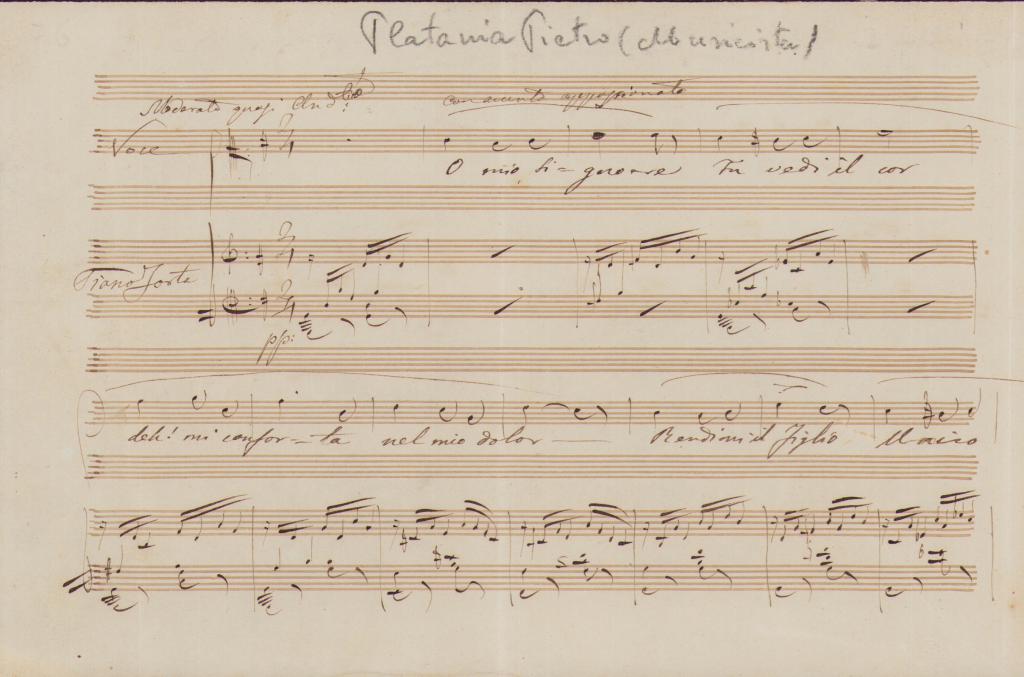 Platania Pietro (Musicista)
Moderato quasi And.tino
con accento appassionato
Voce
O mio Si=gnore Tu vedi il cor
Piano Forte
pp:
deh! mi confor-ta nel mio dolor
Rendimi il figlio